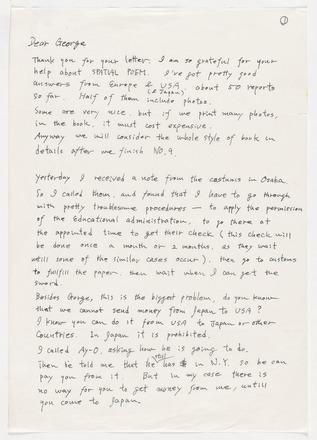 ①
Dear George
Thank you for your letter. I am so grateful for your
help about SPATIAL POEM. I've got pretty good
answers from Europe & USA, about 50 reports
(& Japan)
so far. Half of them include photos.
Some are very nice. but if we print many photos,
in the book, it must cost expensive.
Anyway we will consider the whole style of book in
details after we finish No. 9.
Yesterday I received a note from the costums in Osaka.
So I called them, and found that I have to go through
with pretty troublesome procedures — to apply the permission
of the Educational administration, to go there at
the appointed time to get their check (this check will
be done once a month or 2 months. as they wait
untill some of the similar cases occur), then go to customs
to fullfill the paper. then wait when I can get the
sword.
Besides Gorge, this is the biggest problem, do you know
that we cannot send money from Japan to USA?
I know you can do it from USA to Japan or other
Countries. In Japan it is prohibited.
I called Ay-O, asking how he is going to do.
Then he told me that he still has $ in N.Y. so he can
pay you from it. But in my case there is
no way for you to get money from me, untill
you come to Japan.